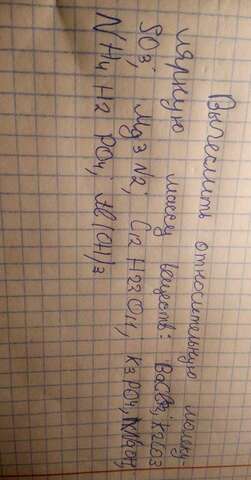 Вычеслить относительную молеку-
лярную массу веществ: BaCl2, K2CO3
SO3; Mg3N2; C12H23O11, K3PO4,
NH4H2PO4; Al(OH)3